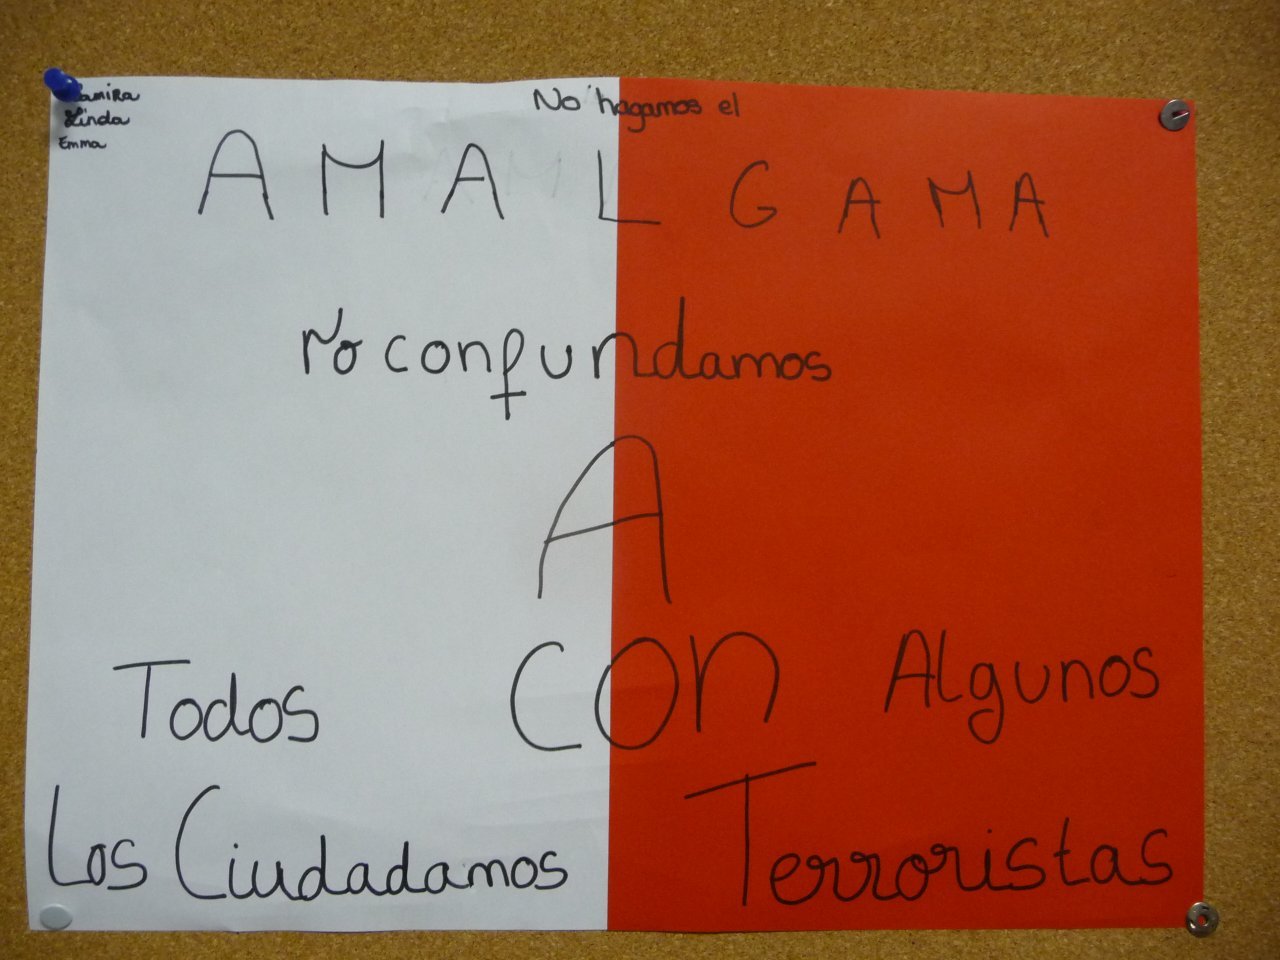 Linda
Emma
No hagamos el
AMALGAMA
No confundamos
A
Todos con Algunos
Los Ciudadamos Terroristas